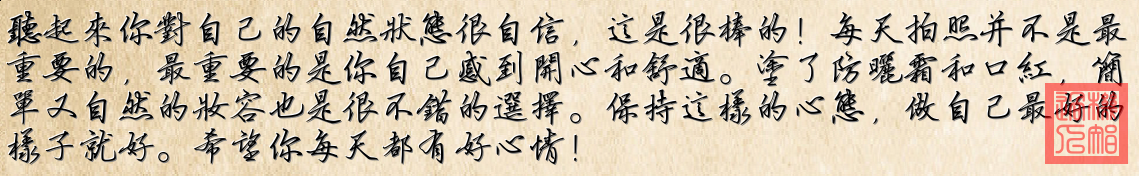 聽起來你對自己的自然狀態很自信，這是很棒的！每天拍照并不是最
重要的，最重要的是你自己感到開心和舒適。塗了防曬霜和口紅，簡
單又自然的妝容也是很不錯的選擇。保持這樣的心態，做自己最好的
樣子就好。希望你每天都有好心情！